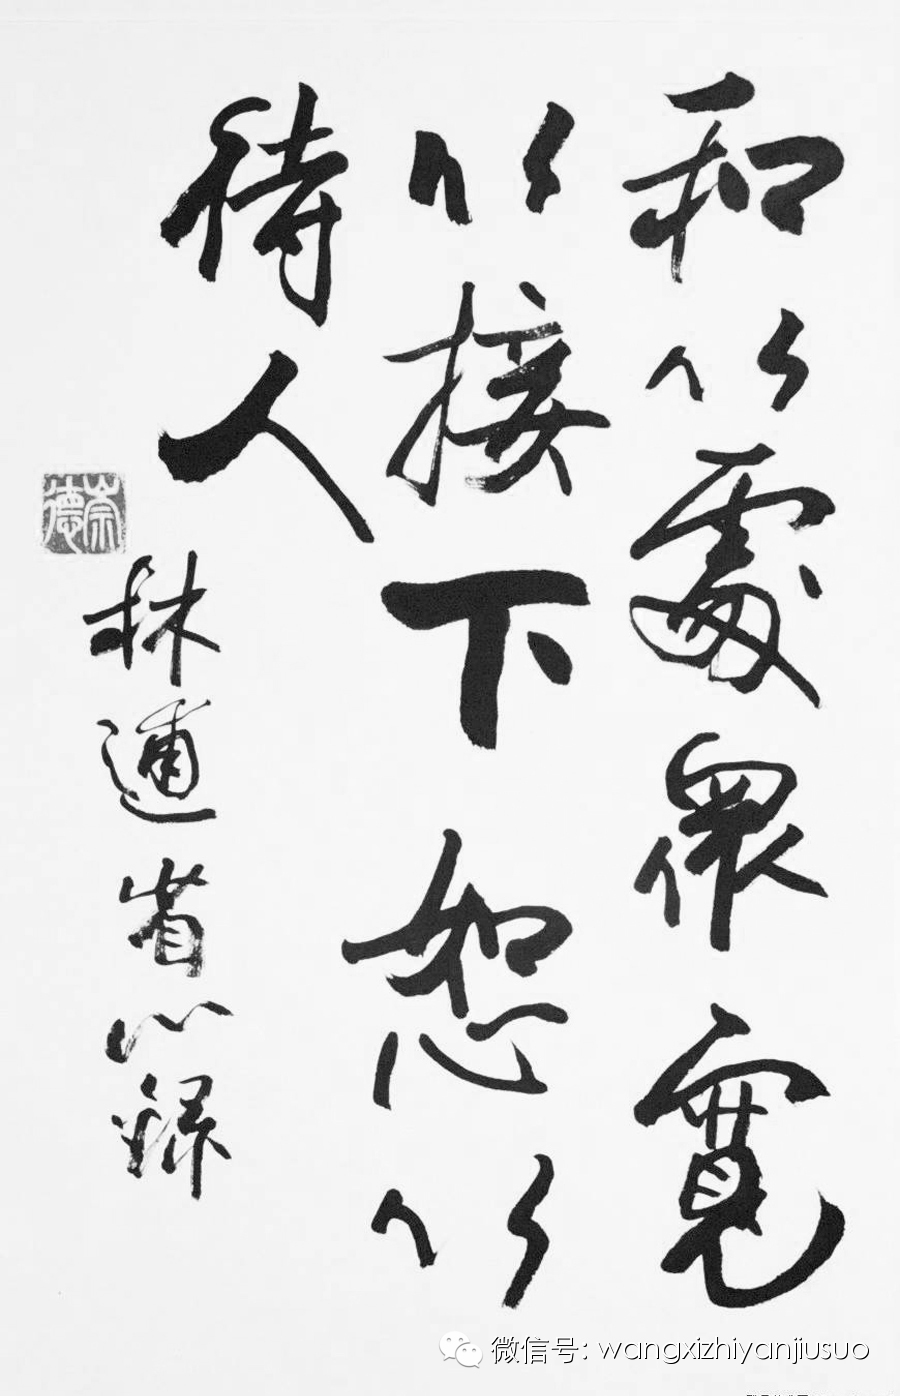 和以處眾寬
以接下恕以
待人
林逋省心錄
崇德
微信号: wangxizhiyanjiusuo